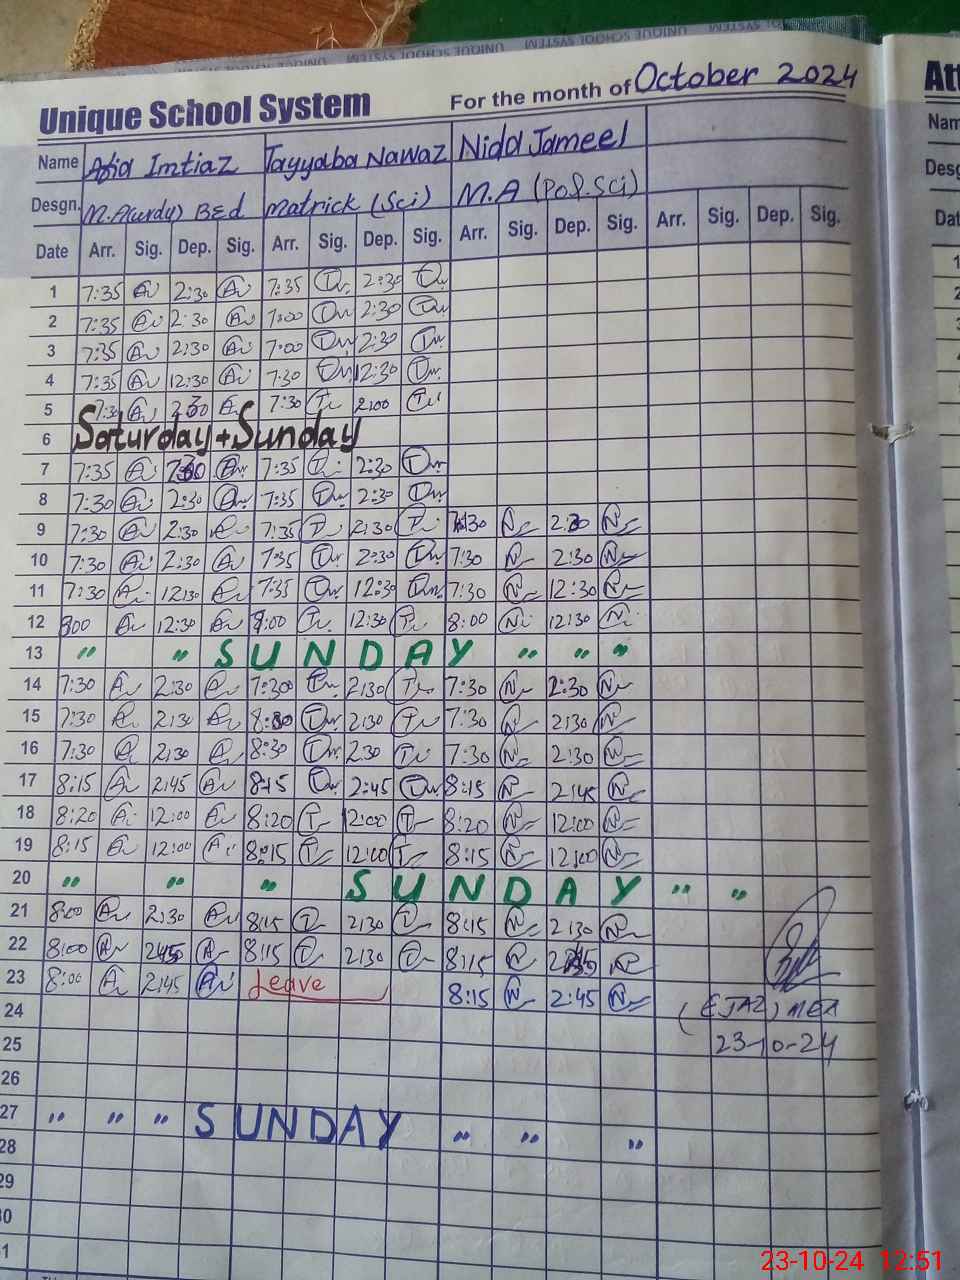 UNIQUE SCHOOL SYSTEM UNIQUE SCHOOL SYSTEM
Unique School System For the month of October 2024
Name Asia Imtiaz Tayyaba Nawaz Nida Jameel
Desgn. M.A(urdu) BEd Matrick (Sci) M.A (Pol.Sci)
Date Arr. Sig. Dep. Sig. Arr. Sig. Dep. Sig. Arr. Sig. Dep. Sig. Arr. Sig. Dep. Sig.
1 7:35 2:30 7:35 2:30
2 7:35 2:30 7:00 2:30
3 7:35 2:30 7:00 2:30
4 7:35 12:30 7:30 12:30
5 7:30 2:30 7:30 2:00
6 Saturday + Sunday
7 7:35 7:35 2:30
8 7:30 2:30 7:35 2:30
9 7:30 2:30 7:35 2:30 7:30 2:30
10 7:30 2:30 7:35 2:30 7:30 2:30
11 7:30 12:30 7:35 12:30 7:30 12:30
12 8:00 12:30 8:00 12:30 8:00 12:30
13 " " SUNDAY " " "
14 7:30 2:30 7:30 2:30 7:30 2:30
15 7:30 2:30 8:30 2:30 7:30 2:30
16 7:30 2:30 8:30 2:30 7:30 2:30
17 8:15 2:45 8:15 2:45 8:15 2:45
18 8:20 12:00 8:20 12:00 8:20 12:00
19 8:15 12:00 8:15 12:00 8:15 12:00
20 " " " SUNDAY " "
21 8:00 2:30 8:15 2:30 8:15 2:30
22 8:00 2:45 8:15 2:30 8:15
23 8:00 2:45 Leave 8:15 2:45
24 (EJAZ) MEA
25 23-10-24
26
27 " " " SUNDAY " " "
28
29
30
31
Att
Nam
Desg
Dat
23-10-24 12:51